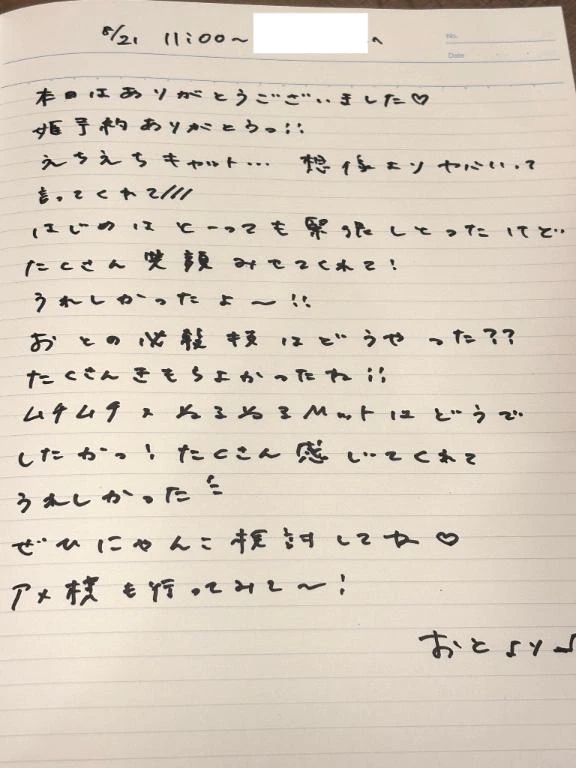 8/21 11:00〜 へ
No.
Date
本日はありがとうございました♡
姫予約ありがとうっ!!
えちえちキャット… 想像よりヤバいって
言ってくれて///
はじめはとーっても緊張しとったけど…
たくさん笑顔みせてくれて!
うれしかったよ〜!!
おとの必殺技はどうやった??
たくさんきもちよかったね!!
ムチムチ×ぬるぬるMットはどうで
したかっ!たくさん感じてくれて
うれしかった
ぜひにゃんこ検討してね♡
アメ横も行ってみて〜!
おとより♪